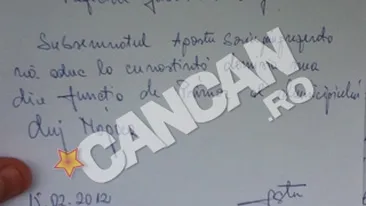 Subsemnatul Apostu Sorin
vă aduc la cunoștință demisia mea
din funcția de Primar al Municipiului
Cluj Napoca
CANCAN
.RO
15.02.2012